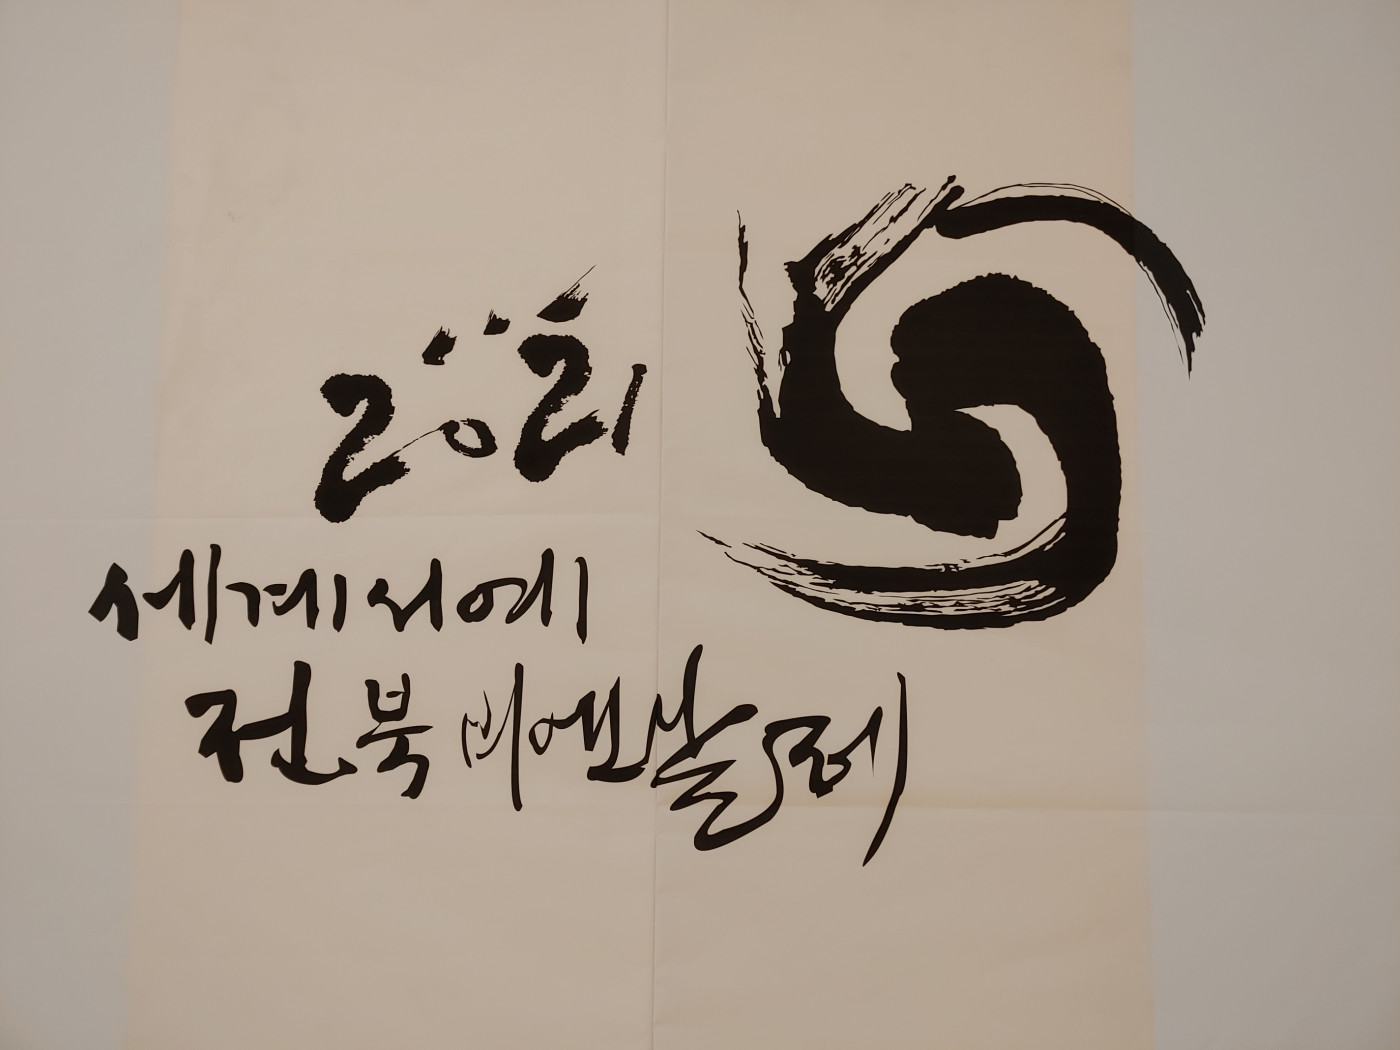 2021
세계서예
전북비엔날레